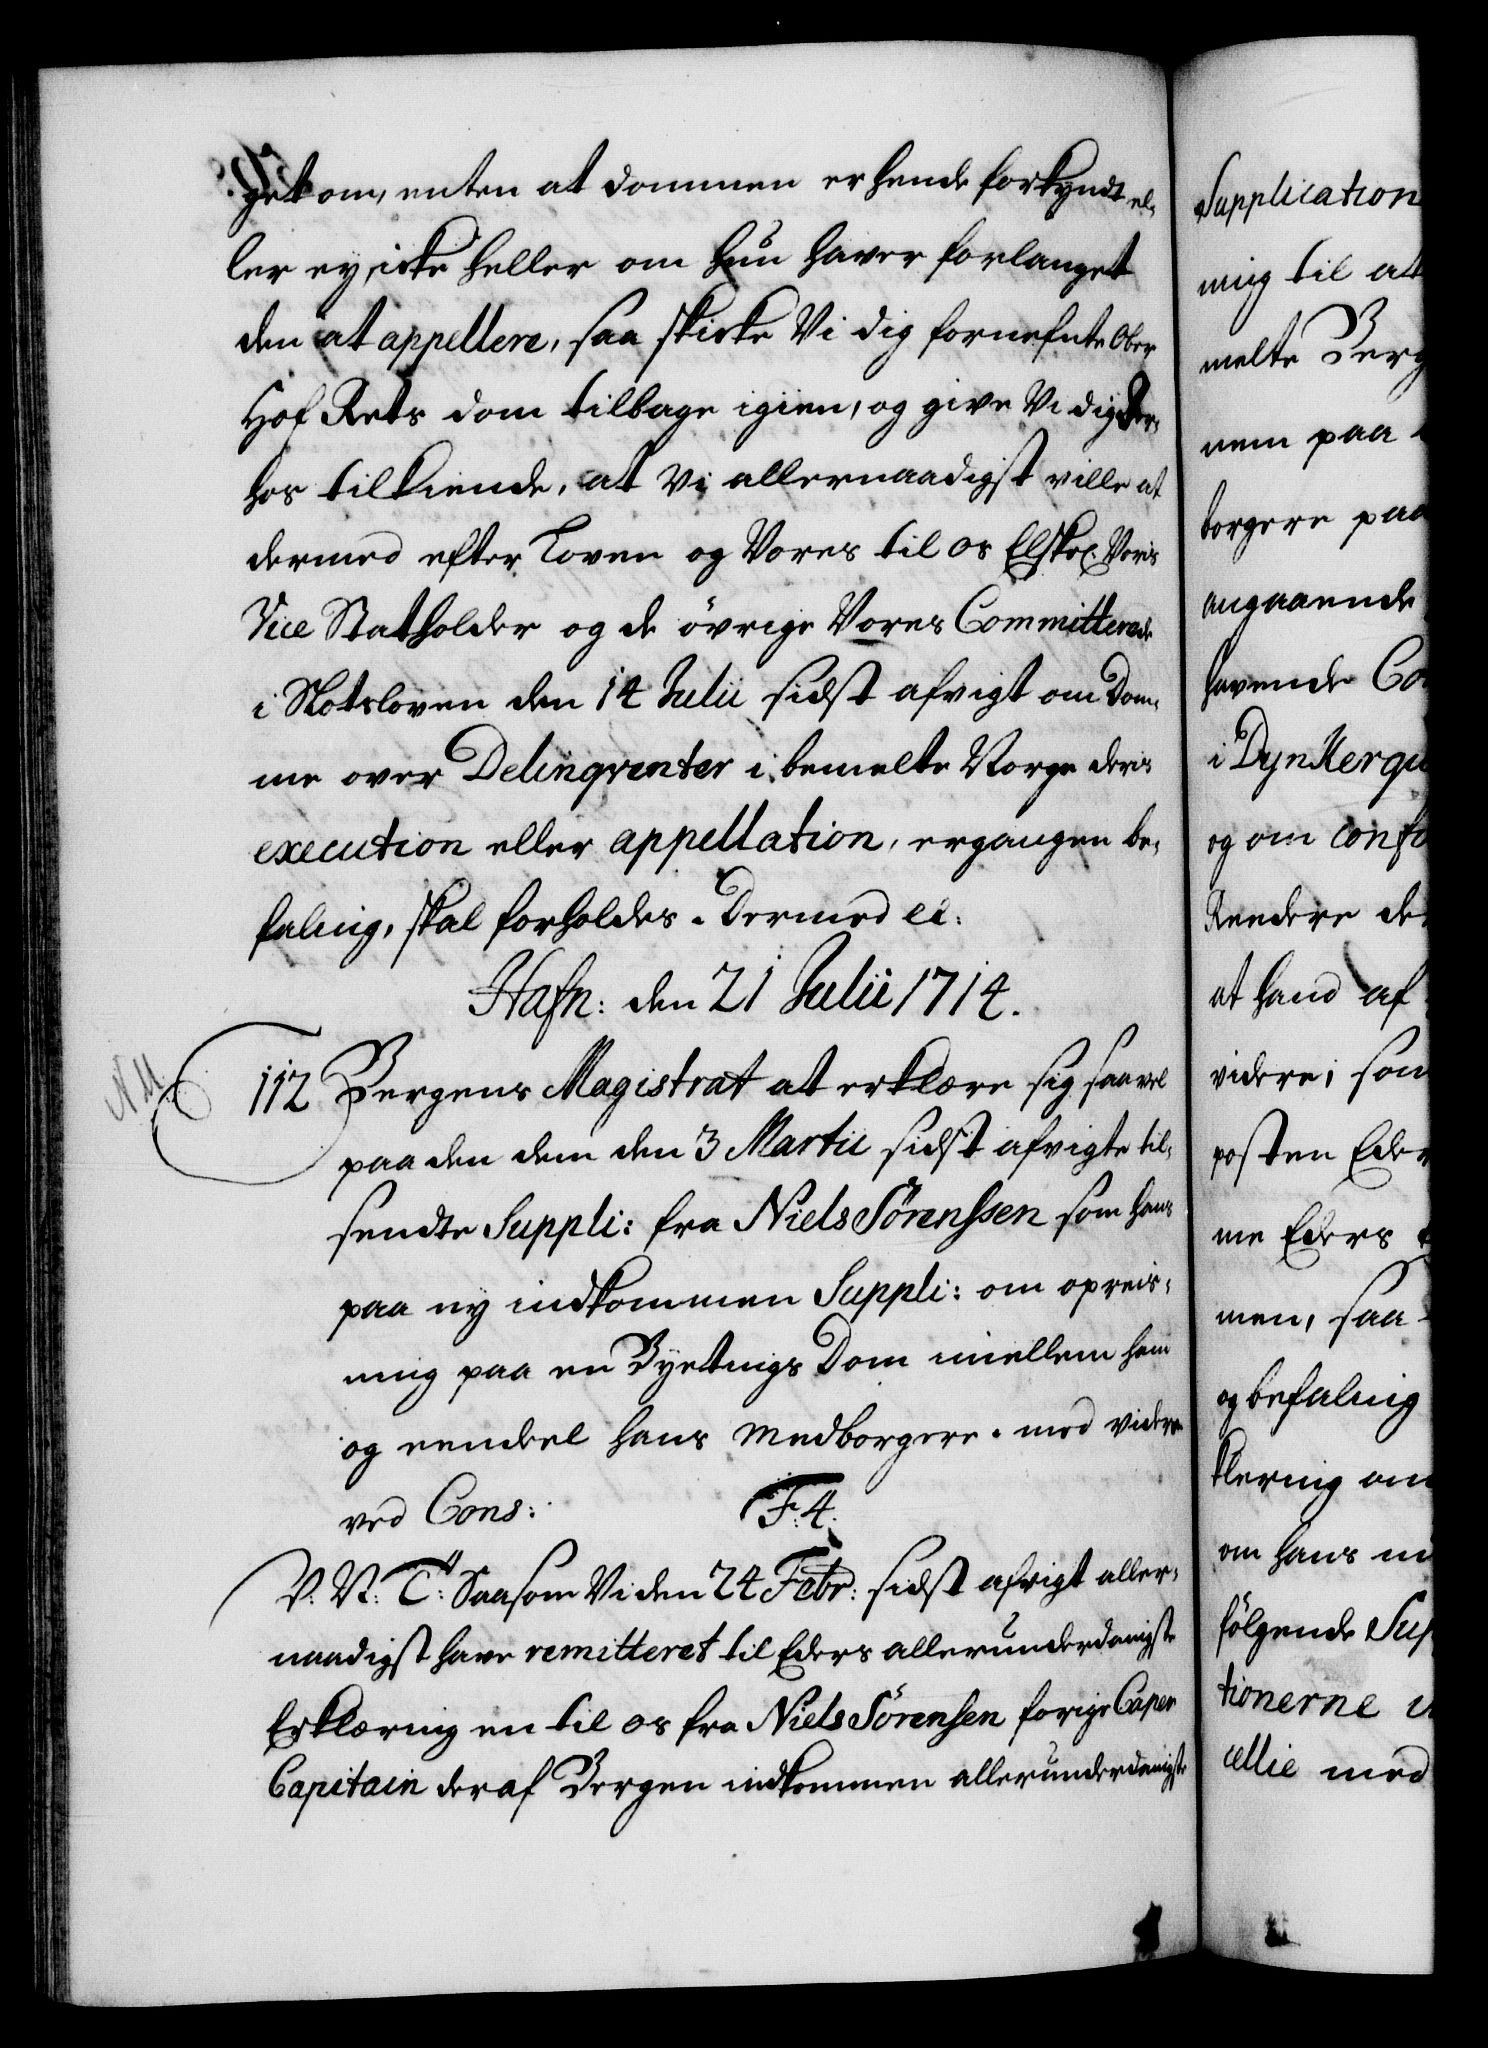 get om, enten at dommen er hende forkyndt el-
ler ey, icke heller om hun haver forlanget
den at appellere, saa skicke Vi dig fornefnte Ober
Hof Rets dom tilbage igien, og give Vi dig der-
hos tilkiende, at Vi allernaadigst ville at
dermed efter Loven og Vores til os Elskel. Voris
Vice Statholder og de övrige Vores Committerede
i Slotsloven den 14 Julii sidst afvigt om Dom-
me over Delinqventer i bemelte Norge deris
execution eller appellation, ergangen be-
faling, skal forholdes. Dermed etc:
Hafn: den 21 Julii 1714.
112 Bergens Magistrat at erklære sig saavel
paa den dem den 3 Martii sidst afvigte til-
sendte Suppli: fra Niels Sörenssen som hans
paa ny indkommen Suppli: om opreis-
ning paa en Byetings Dom imellem ham
og eendeel hans medborgere. med videre
ved Cons: F: 4.
V. N: T: Saasom Vi den 24 Febr: sidst afvigt aller-
naadigst have remitteret til Eders allerunderdanigste
Erklæring en til os fra Niels Sörensen forige Caper
Capitain der af Bergen indkommen allerunderdanigste
Supplication
ning til at
melte Berg
nem paa
borgere paa
angaaende
havende Co
i Dynkerqu
og om conf
Reedere de
at hand af
videre; som
posten Eder
me Eders
men, saa
og befaling
klering om
om hans
fölgende Sup
tionerne
cellie med